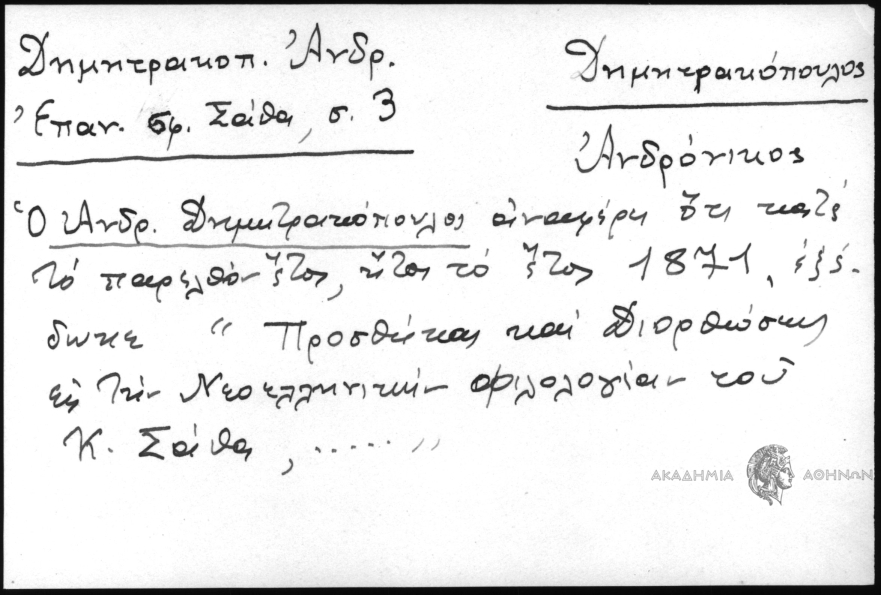 Δημητρακοπ. Ἀνδρ.
Ἐπαν. σφ. Σάθα, σ. 3
Δημητρακόπουλος
Ἀνδρόνικος
Ὁ Ἀνδρ. Δημητρακόπουλος ἀναφέρει ὅτι κατά
τό παρελθόν ἔτος, ἤτοι τό ἔτος 1871, ἐξέ-
δωκε “ Προσθήκας καί Διορθώσεις
εἰς τήν Νεοελληνικήν φιλολογίαν τοῦ
Κ. Σάθα, ...... ”
ΑΚΑΔΗΜΙΑ ΑΘΗΝΩΝ